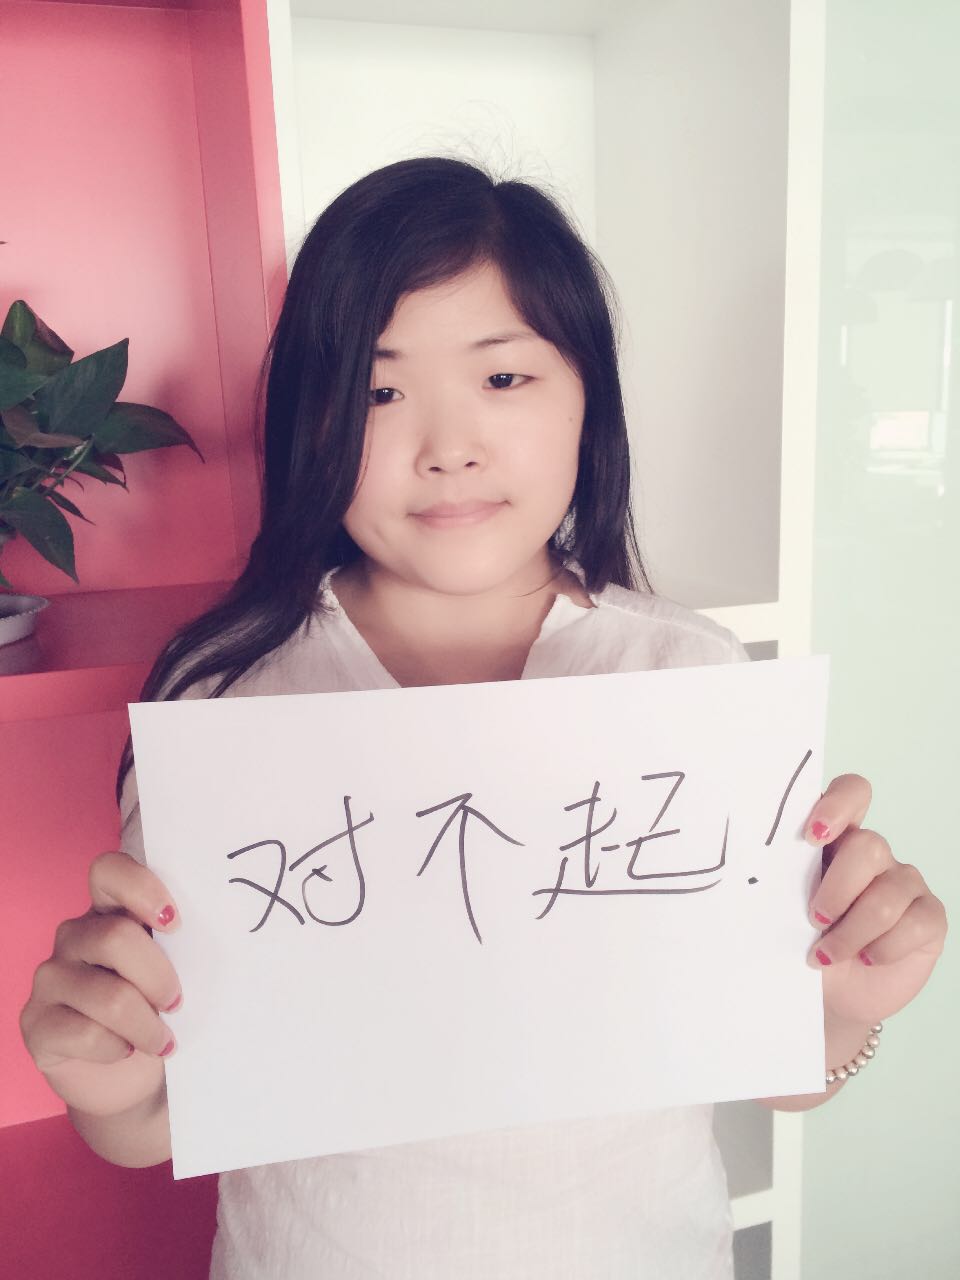 对不起!